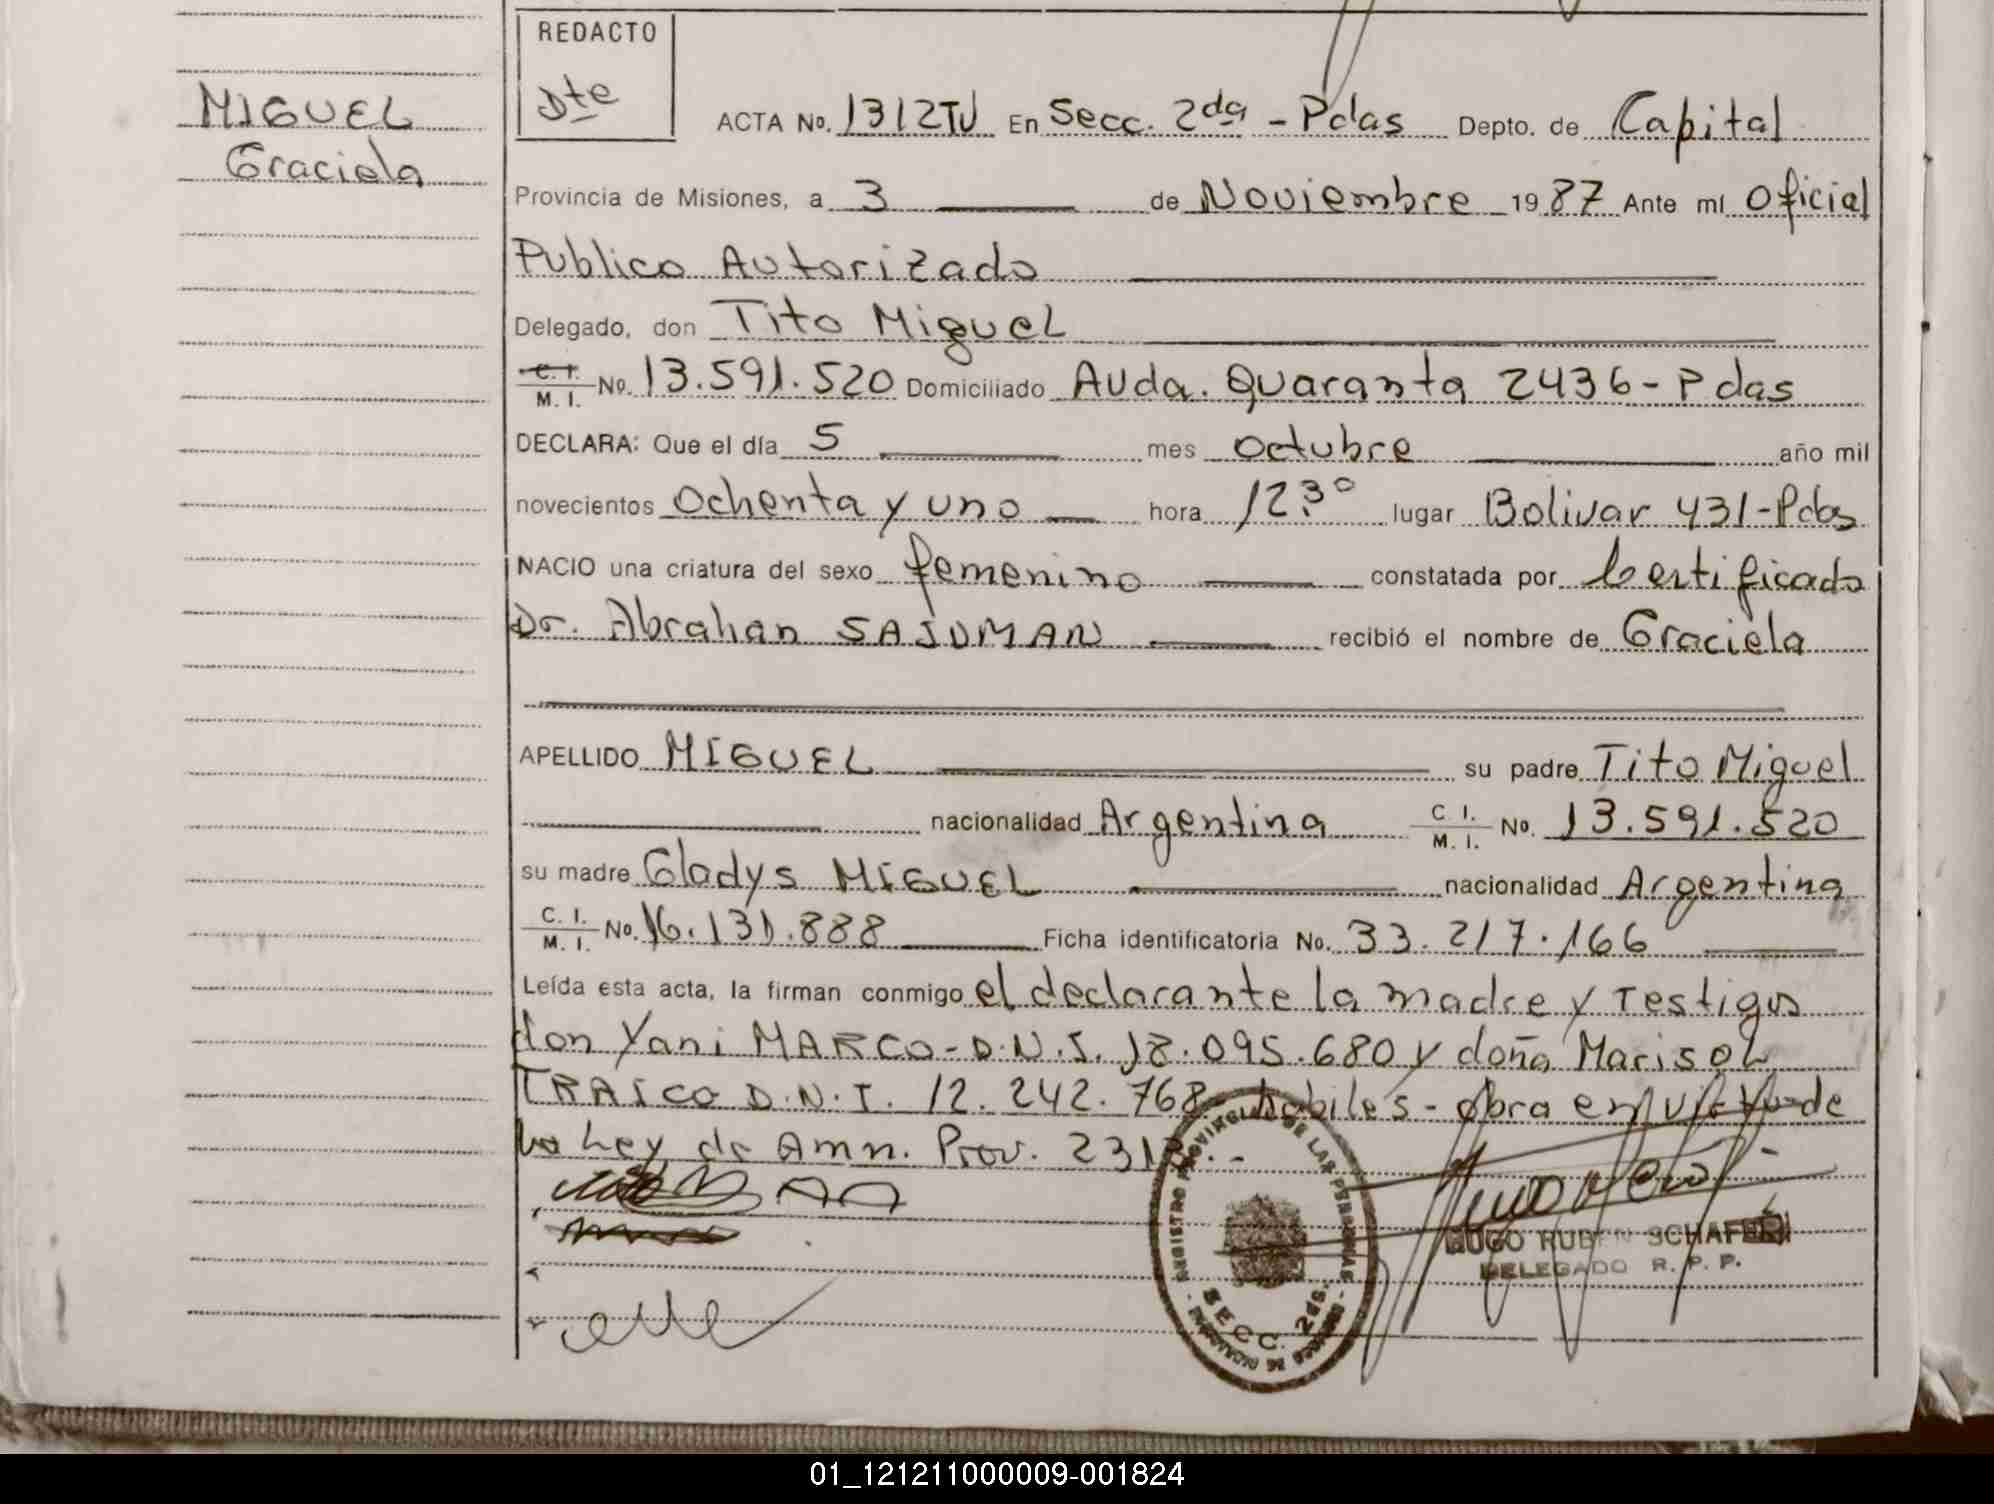 REDACTO
Dte
MIGUEL
Graciela
ACTA No. 1312TU En Secc. 2da - Pdas Depto. de Capital
Provincia de Misiones, a 3 de Noviembre 1987 Ante mi Oficial
Publico Autorizado
Delegado, don Tito Miguel
C. I. M. I. No. 13.591.520 Domiciliado Avda. Quaranta 2436 - Pdas
DECLARA: Que el día 5 mes octubre año mil
novecientos ochenta y uno hora 12.30 lugar Bolivar 431 - Pdas
NACIO una criatura del sexo femenino constatada por Certificado
Dr. Abrahan SAJUMAN recibió el nombre de Graciela
APELLIDO MIGUEL su padre Tito Miguel
nacionalidad Argentina C. I. M. I. No. 13.591.520
su madre Gladys MIGUEL nacionalidad Argentina
C. I. M. I. No. 16.131.888 Ficha identificatoria No. 33.217.166
Leída esta acta, la firman conmigo el declarante la madre y Testigos
don Yani MARCO - D.N.I. 18.095.680 y doña Marisol
TRAICO D.N.I. 12.242.768 habiles - obra en de
la Ley de Amn. Prov.
REGISTRO PROVINCIAL DE LAS PERSONAS
SECC. 2da.
HUGO RUBEN SCHAFER
DELEGADO R. P. P.
01_121211000009-001824